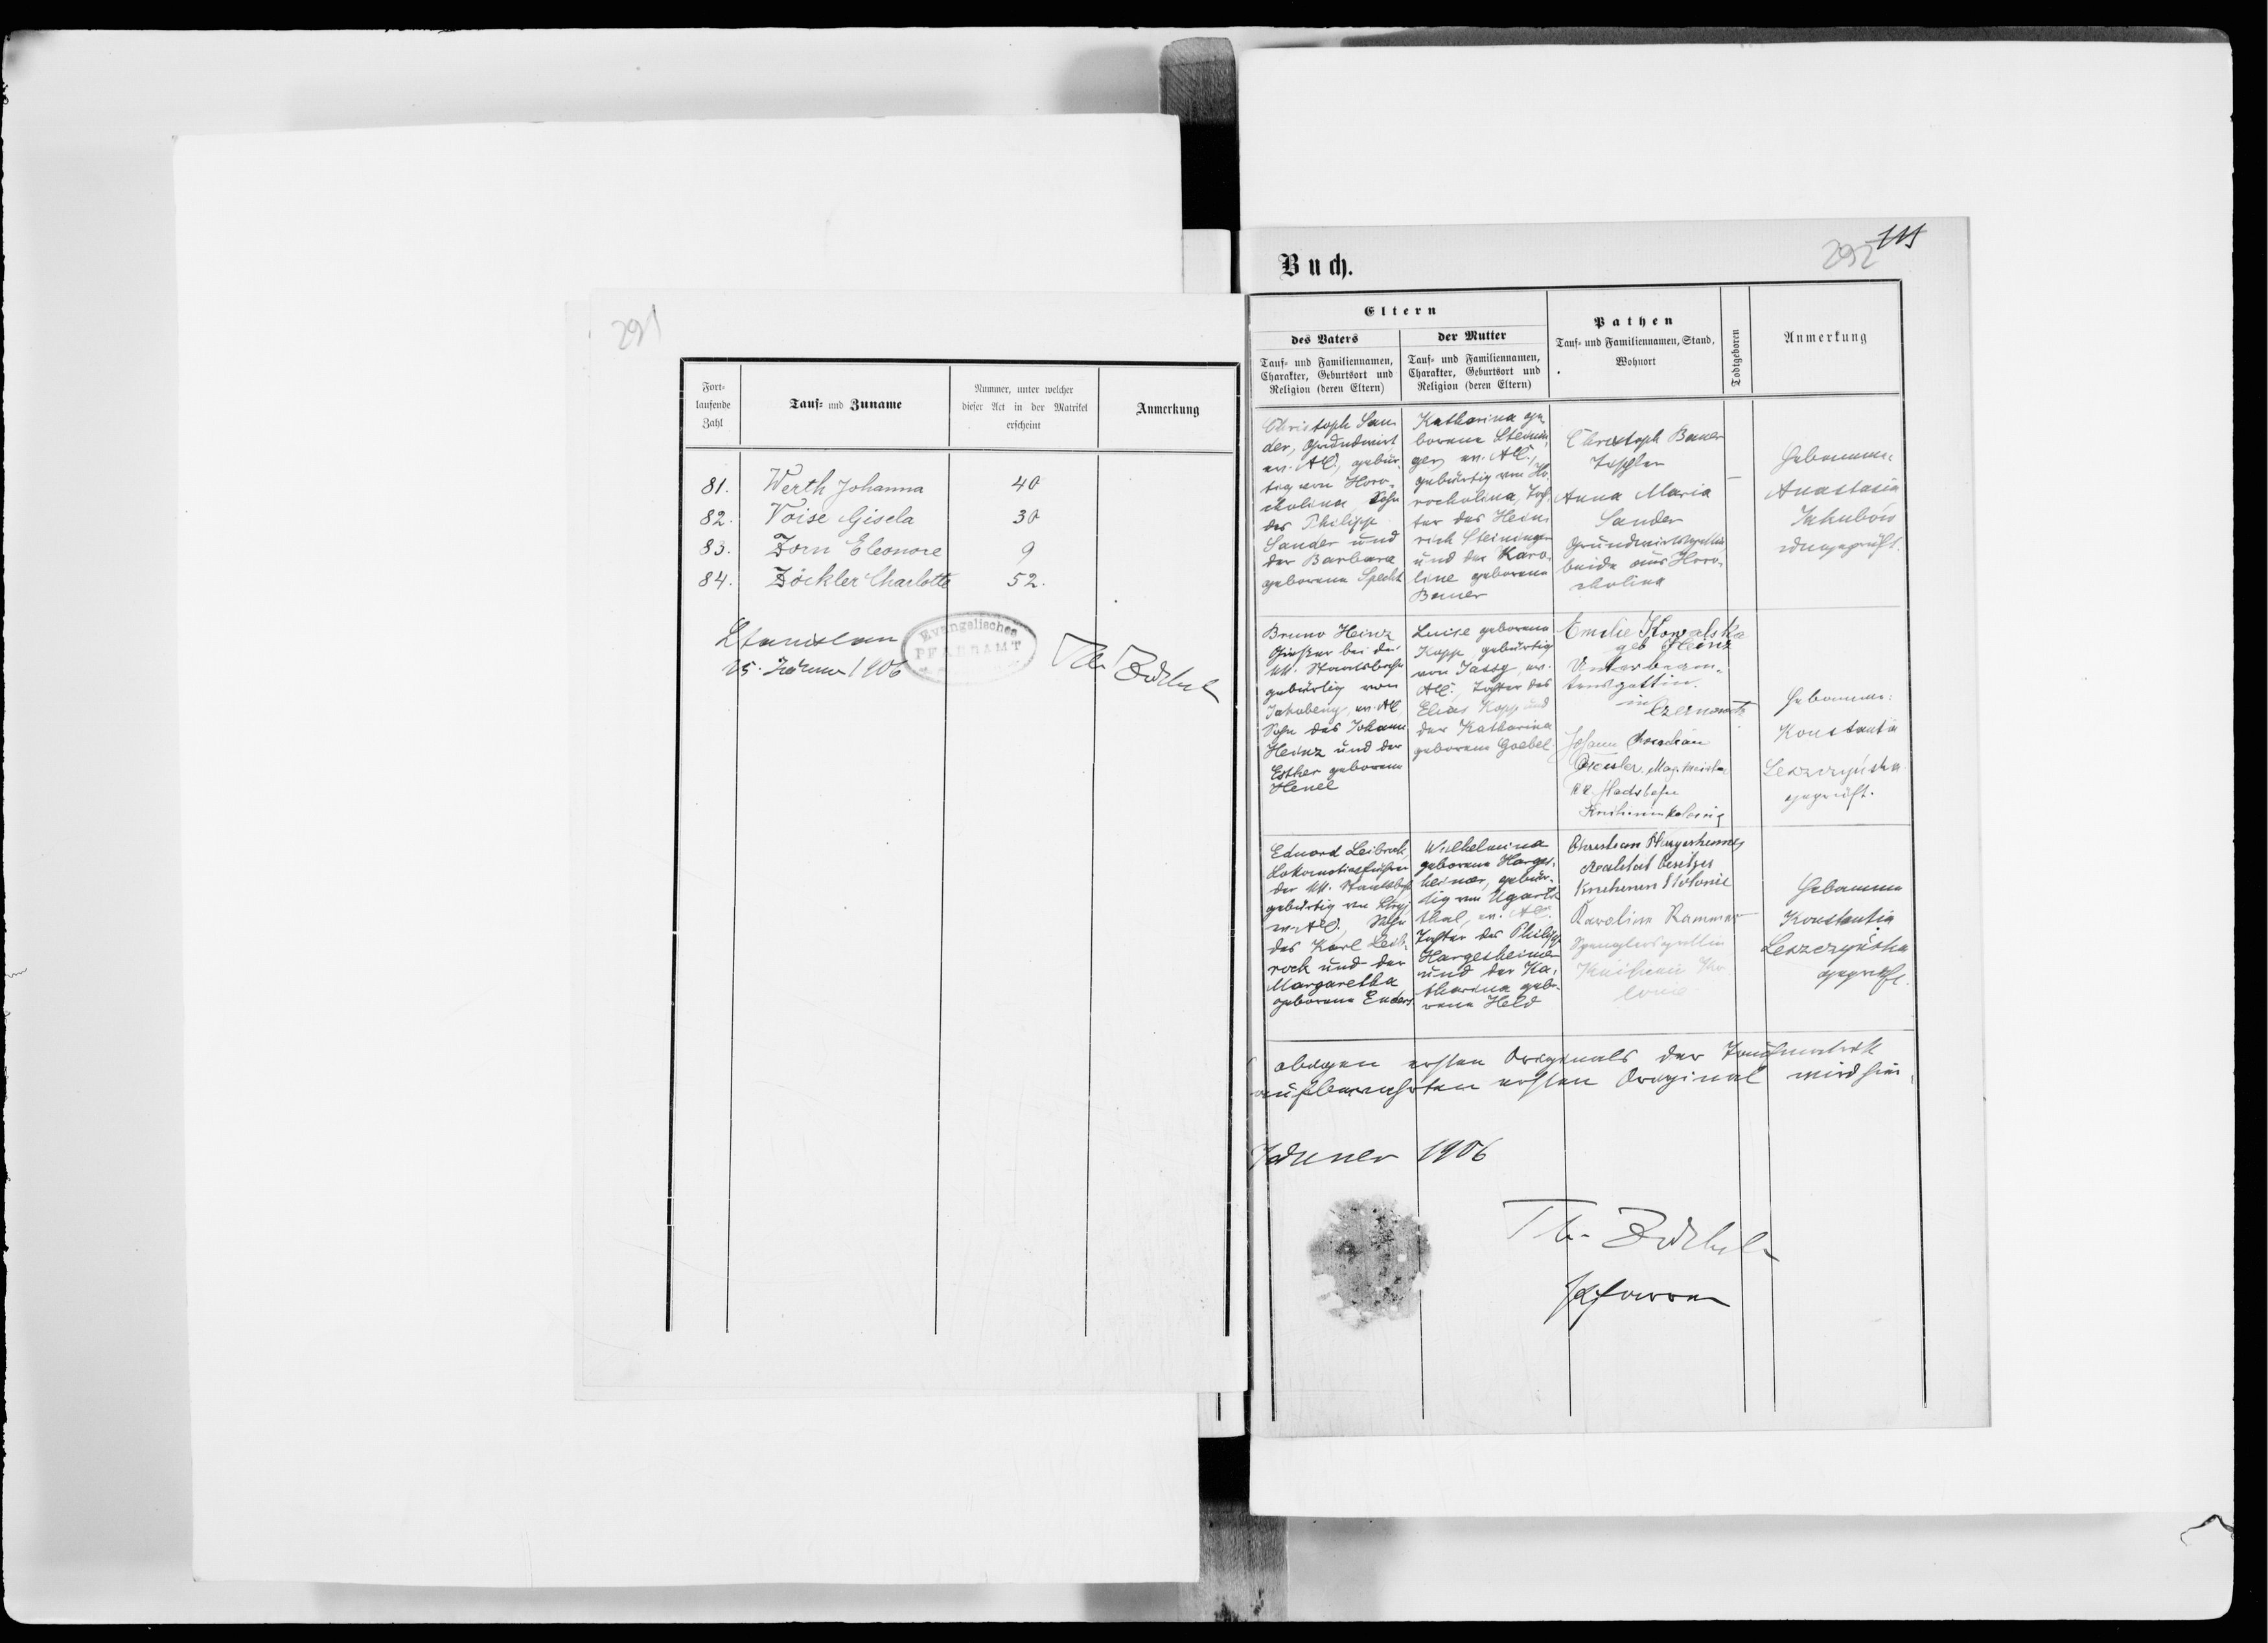 291
Fort-
laufende
Zahl
Tauf- und Zuname
Nummer, unter welcher
dieser Act in der Matrikel
erscheint
Anmerkung
81. Werth Johanna 40
82. Voise Gisela 30
83. Zorn Eleonore 9
84. Zöckler Charlotte 52.
Stanislau
25. Jänner 1906
Evangelisches
PFARRAMT
Th. Zöckler
Buch.
292
Eltern
des Vaters
Tauf- und Familiennamen,
Charakter, Geburtsort und
Religion (deren Eltern)
der Mutter
Tauf- und Familiennamen,
Charakter, Geburtsort und
Religion (deren Eltern)
Pathen
Tauf- und Familiennamen, Stand,
Wohnort
Todtgeboren
Anmerkung
Christoph San-
der, Grundwirt
ev. AC, gebür-
tig von Horo-
cholina, Sohn
des Philipp
Sander und
der Barbara
geborene Specht
Katharina ge-
borene Steinin-
ger, ev. AC.,
gebürtig von Ho-
rocholina, Toch-
ter des Hein-
rich Steininger
und der Karo-
line geborene
Bauer
Christoph Bauer
Tischler
Anna Maria
Sander
Grundwirtsgattin
beide aus Horo-
cholina
—
Hebamme
Anastasia
Jakubów
ungeprüft.
Bruno Heinz
bei der
kk. Staatsbahn
gebürtig von
Jakobeny, ev. AC
Sohn des Johann
Heinz und der
Esther geborene
Henel
Luise geborene
Kopp, gebürtig
von Jassy, ev.
AC., Tochter des
Elias Kopp und
der Katharina
geborene Goebel.
Emilie Kowalska
geb Heinz
Unterbeam-
tensgattin.
in
Czernowitz
Johann
Mag. meister
kk. Stadsbahn
Hebamme:
Konstantia
Leszczyńska
geprüft.
Eduard Leibrock,
Lokomotivführer
der kk. Staatsbahn
gebürtig von Stryj
ev. AC, Sohn
des Karl Leib-
rock und der
Margaretha
geborene Enders
Wilhelmina
geborene Harges-
heimer, gebür-
tig von Ugarts-
thal, ev. AC.
Tochter des Philipp
Hargesheimer
und der Ka-
tharina gebo-
rene Held
Christian Hargesheimer
Realität besitzer
Knihinin Kolonie
Karoline Rammer
Spenglersgattin
Knihinin Ko-
lonie
Hebamme
Konstantia
Leszczyńska
geprüft.
obigen ersten Originals der Taufmatrik
aufbewahrten ersten Original wird hier-
Jänner 1906
Th. Zöckler
Pfarrer